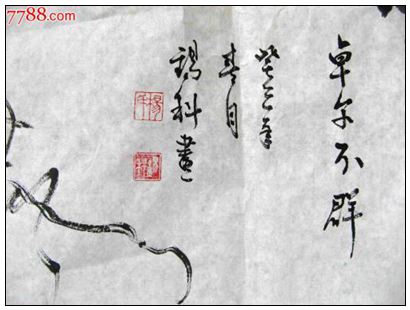 7788.com
卓尔不群
癸巳年
春月
锡科画